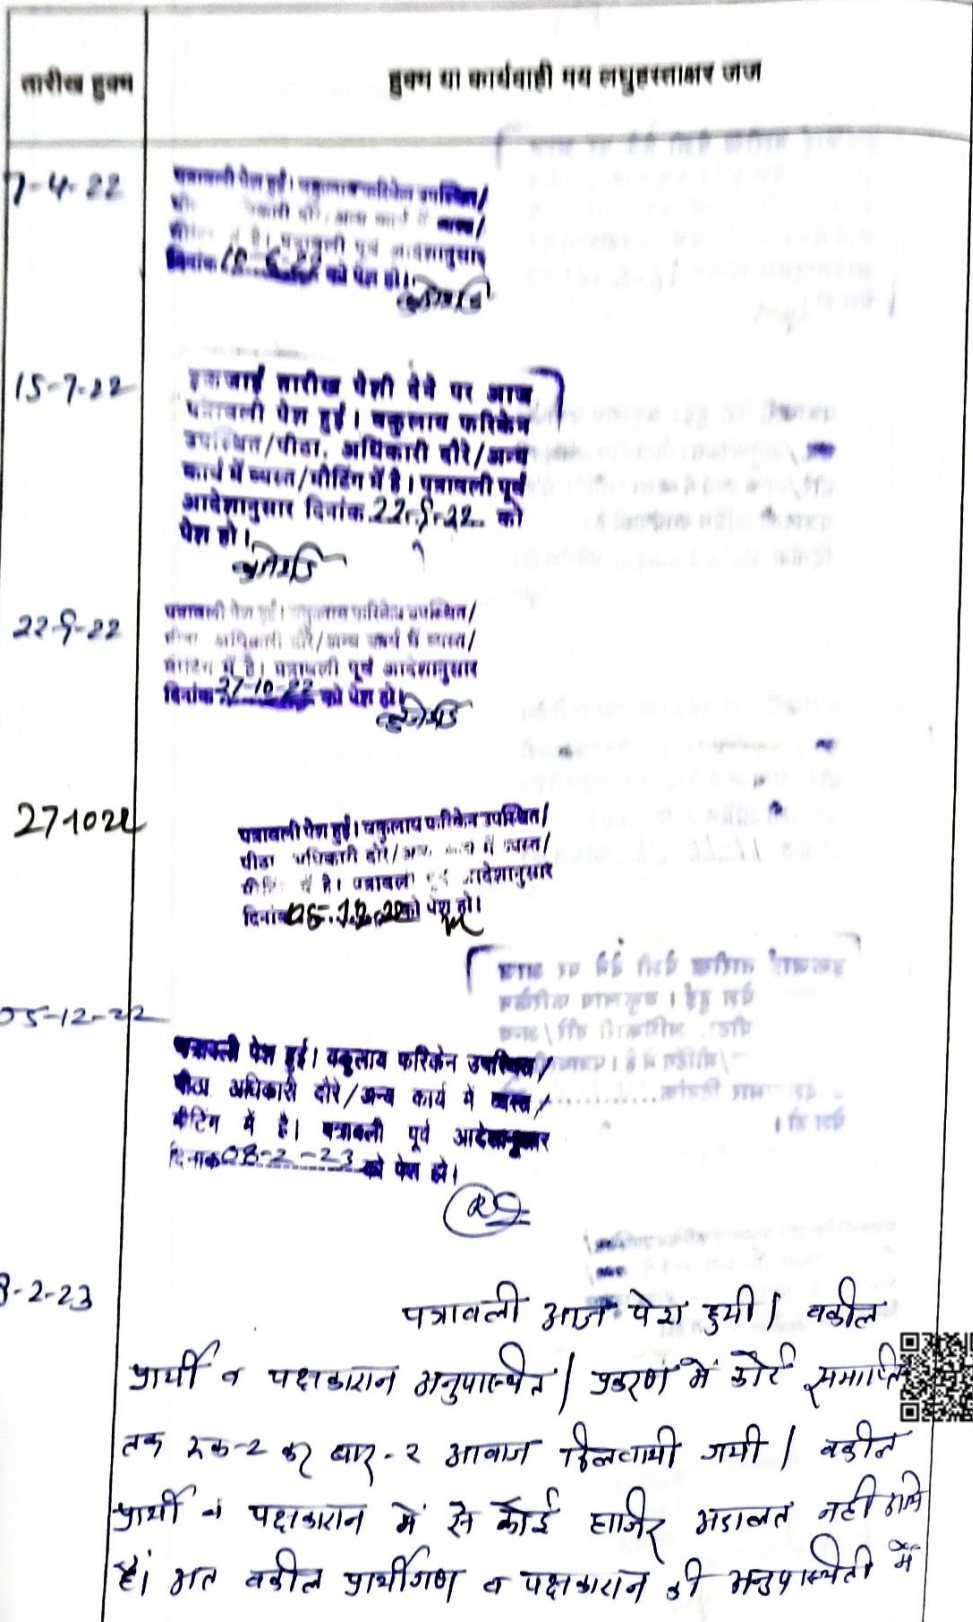 तारीख हुक्म
हुक्म या कार्यवाही मय लघुहस्ताक्षर जज
7-4-22
पत्रावली पेश हुई। वकुलाय फरिकेन उपस्थित/
कारी दौरे/अन्य कार्य में व्यस्त/
में है। पत्रावली पूर्व आदेशानुसार
दिनांक को पेश हो।
15-7-22
इकजाई तारीख पेशी देने पर आज
पत्रावली पेश हुई। वकुलाय फरिकेन
उपस्थित/पीठा. अधिकारी दौरे/अन्य
कार्य में व्यस्त/मीटिंग में है। पत्रावली पूर्व
आदेशानुसार दिनांक 22-9-22 को
पेश हो।
22-9-22
पत्रावली पेश हुई। वकुलाय फरिकेन उपस्थित/
पीठा अधिकारी दौरे/अन्य कार्य में व्यस्त/
मीटिंग में है। पत्रावली पूर्व आदेशानुसार
दिनांक 27-10-22 को पेश हो।
27-10-22
पत्रावली पेश हुई। वकुलाय फरिकेन उपस्थित/
पीठा अधिकारी दौरे/अन्य में व्यस्त/
में है। पत्रावली पूर्व आदेशानुसार
दिनांक 05-12-22 को पेश हो।
05-12-22
पत्रावली पेश हुई। वकुलाय फरिकेन उपस्थित/
पीठा अधिकारी दौरे/अन्य कार्य में व्यस्त/
मीटिंग में है। पत्रावली पूर्व आदेशानुसार
दिनांक 08-2-23 को पेश हो।
8-2-23
पत्रावली आज पेश हुयी। वकील
प्रार्थी व पक्षकारान अनुपस्थित। प्रकरण में कोर्ट समाप्ति
तक रूक-2 कर बार-2 आवाज दिलवायी गयी। वकील
प्रार्थी व पक्षकारान में से कोई हाजिर अदालत नही आये
है। अत वकील प्रार्थीगण व पक्षकारान की अनुपस्थिती में